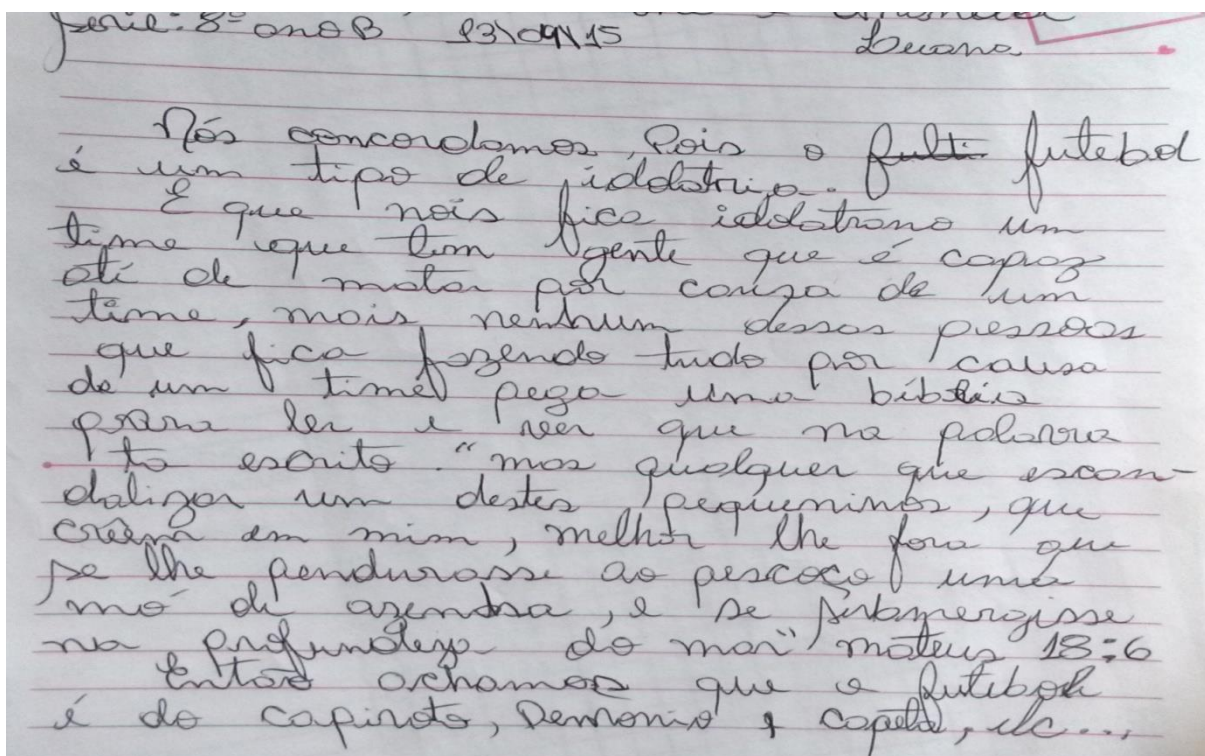 Série: 8º ano B 23\09\15 Luana
Nós concordamos, Pois o futebol
é um tipo de idolatria.
É que nois fica idolatrano um
time que tem gente que é capaz
até de matar por cauza de um
time, mais nenhum dessas pessoas
que fica fazendo tudo por causa
de um time pega uma bíblia
para ler e veer que na palavra
ta escrito "mas qualquer que escan-
dalizar um destes pequeninos, que
creem em mim, melhor lhe fora que
se lhe pendurasse ao pescoço uma
mó de azenha, e se submergisse
na profundeza do mar" mateus 18:6
Então achamos que o futebol
é do capiroto, Demonio, capeta, etc...,